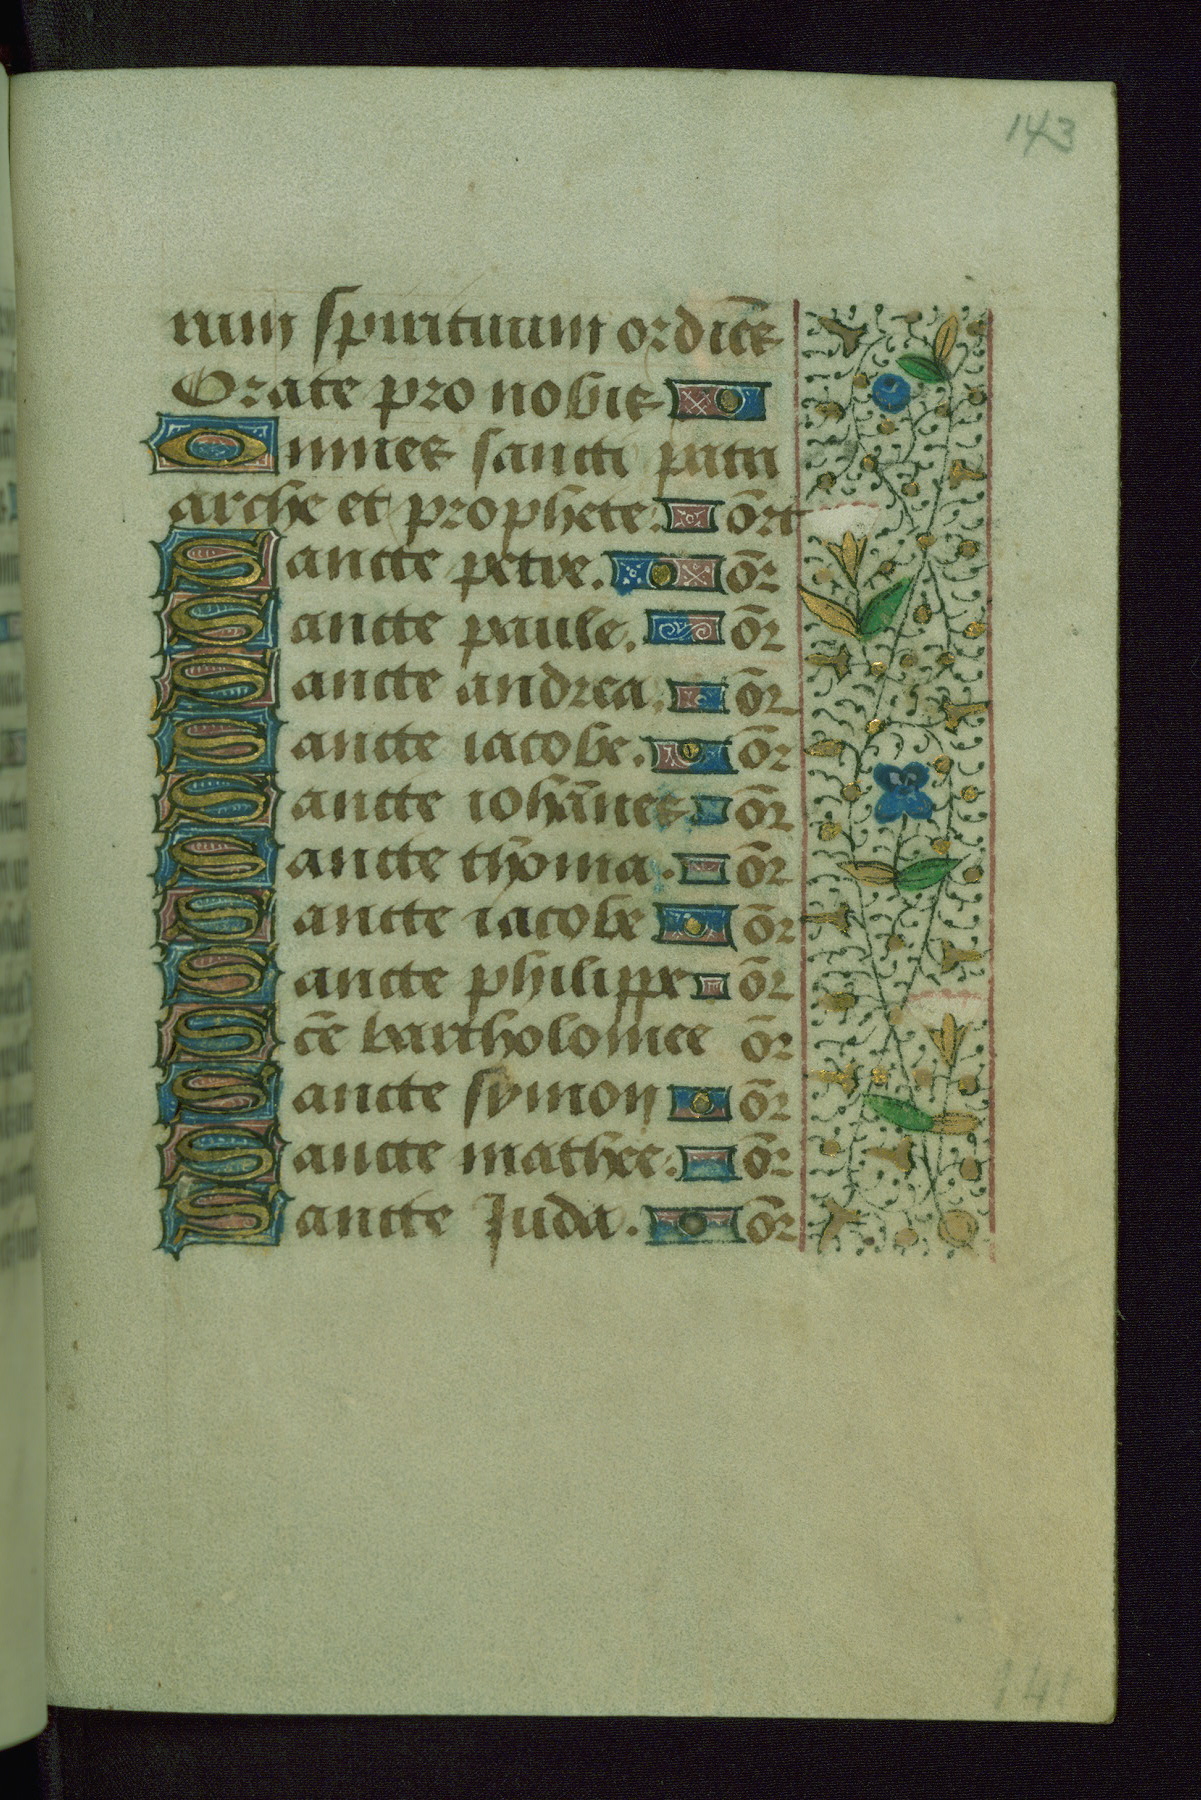 143
rum spirituum ordiēs
Orate pro nobis
Omnes sancti patri
arche et prophete. ōrt
Sancte petre. ōr
Sancte paule. ōr
Sancte andrea. ōr
Sancte iacobe. ōr
Sancte iohānes ōr
Sancte thoma. ōr
Sancte iacobe ōr
Sancte philippe ōr
Scē bartholomee ōr
Sancte symon ōr
Sancte mathee. ōr
Sancte Juda. ōr
141